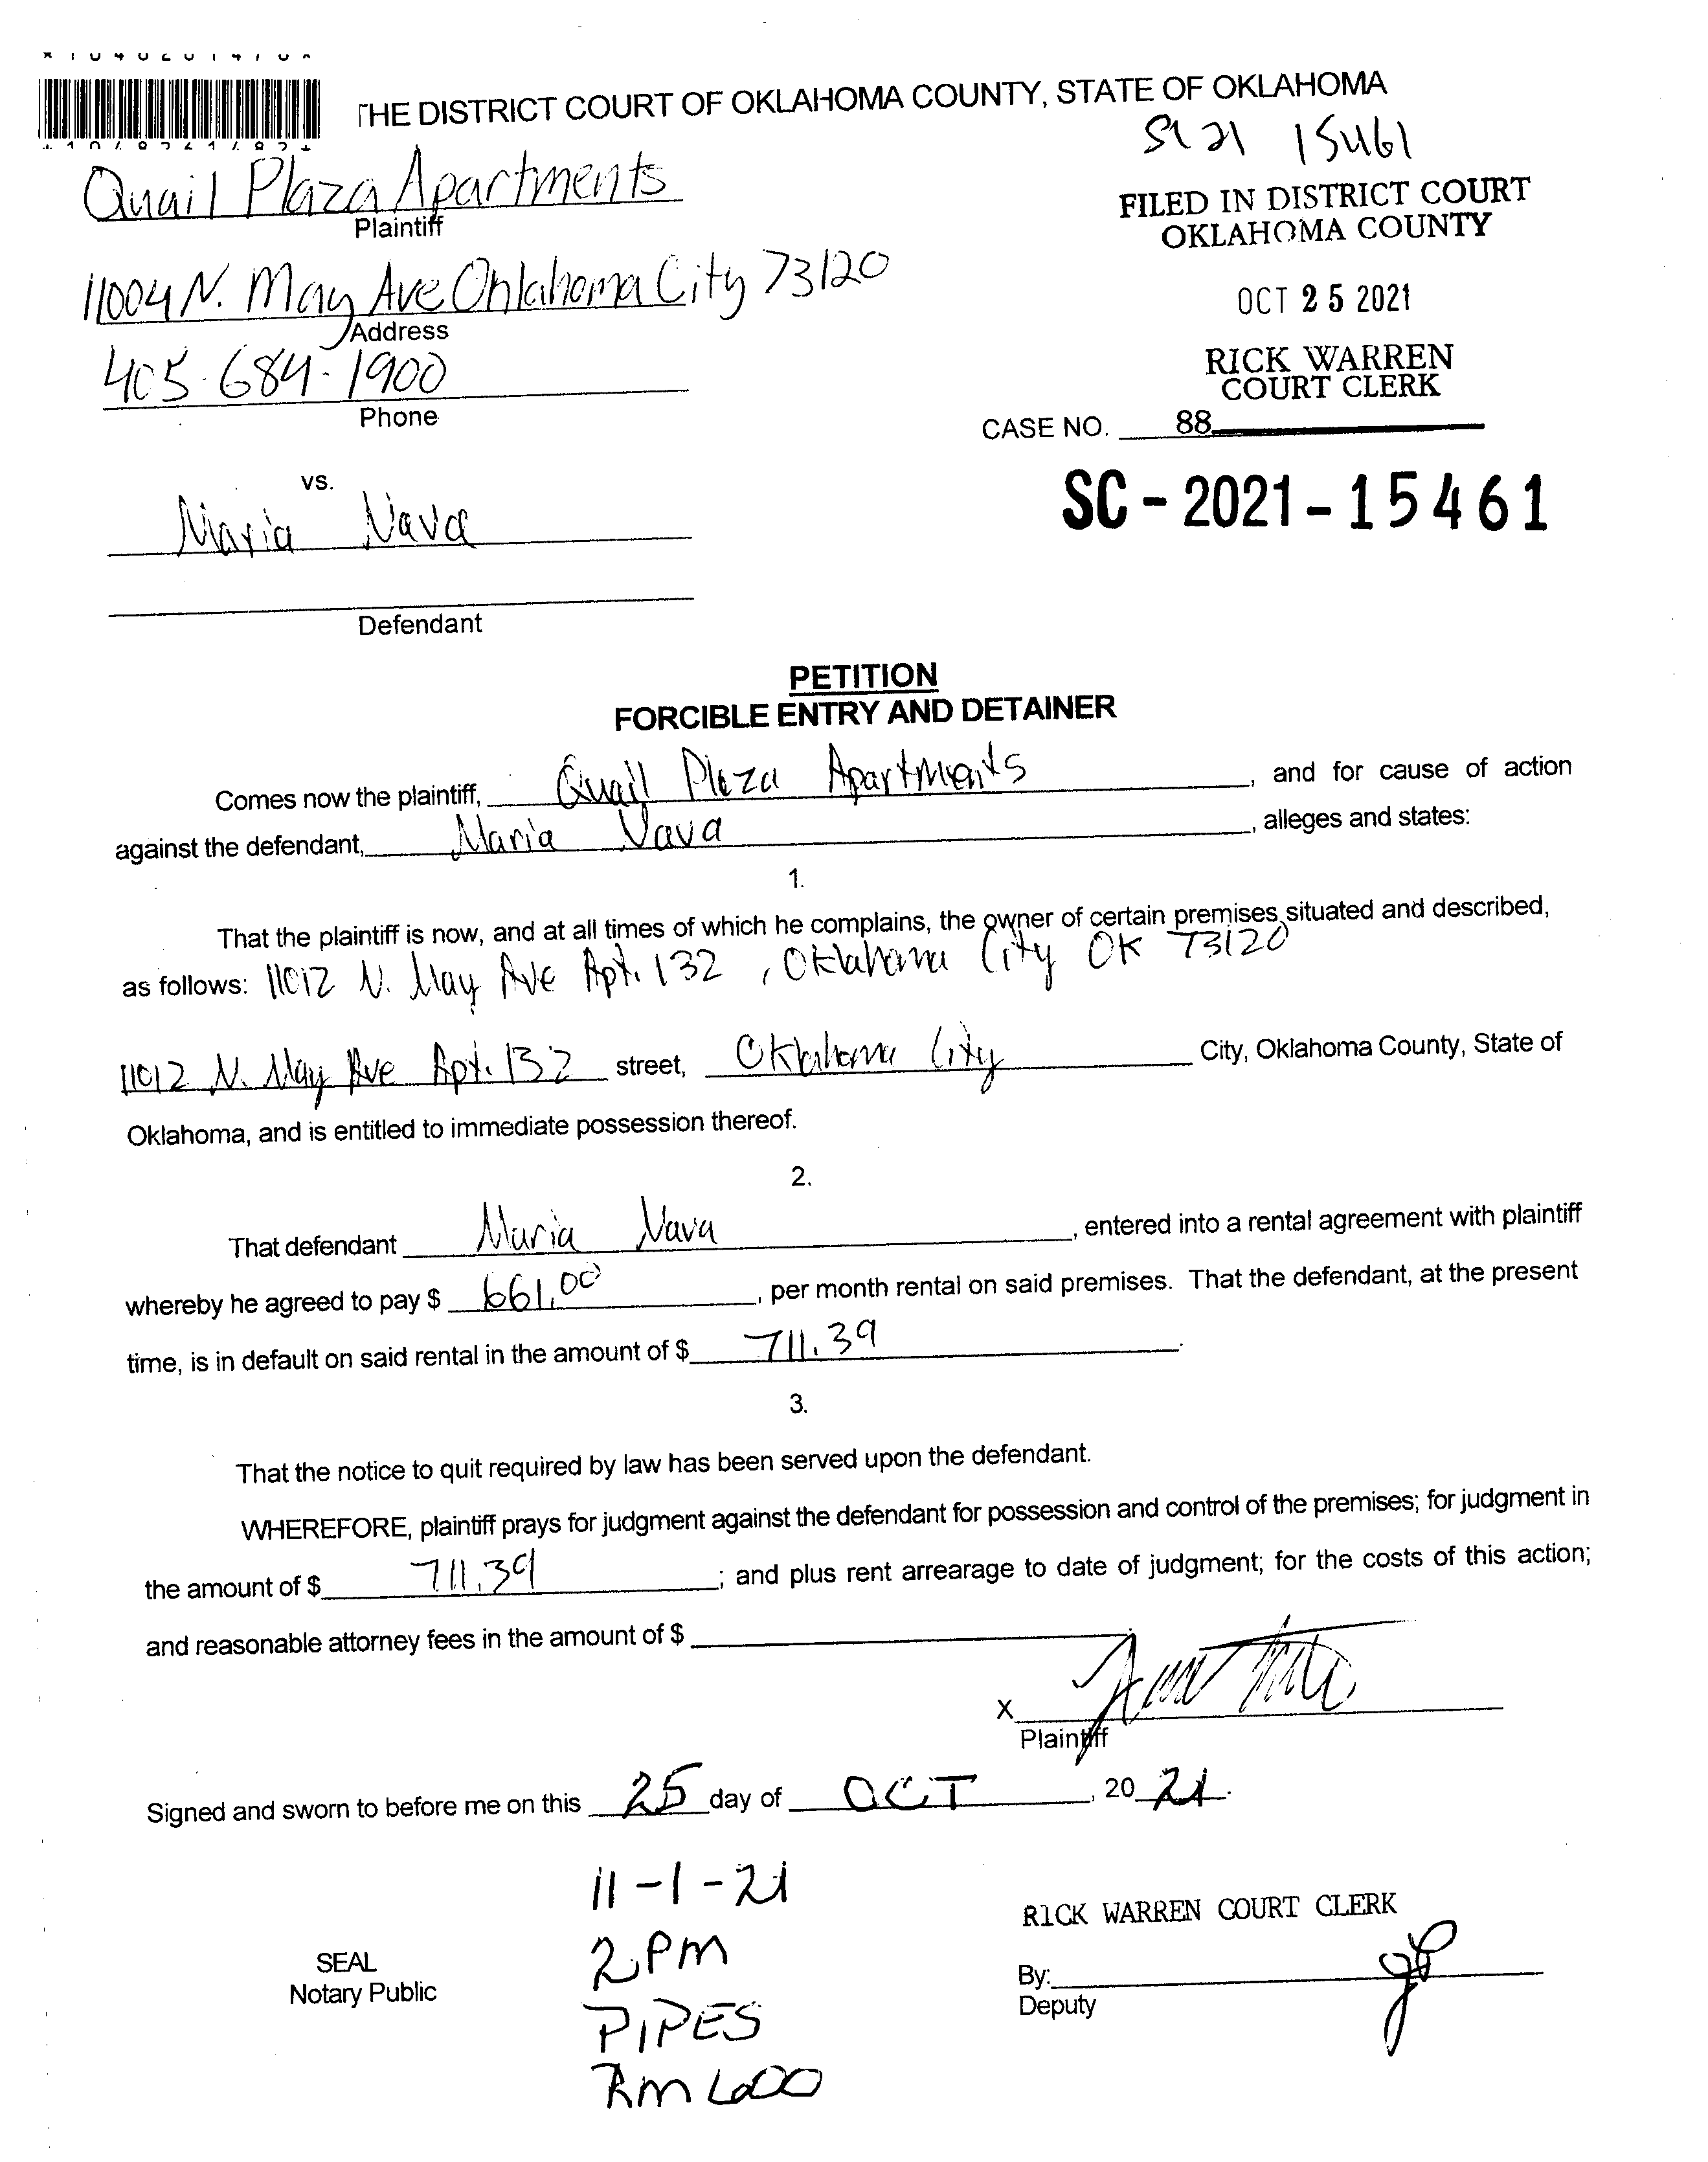 THE DISTRICT COURT OF OKLAHOMA COUNTY, STATE OF OKLAHOMA
SC 21 15461
Quail Plaza Apartments
Plaintiff
FILED IN DISTRICT COURT
OKLAHOMA COUNTY
11004 N. May Ave Oklahoma City 73120
Address
OCT 25 2021
405-684-1900
Phone
RICK WARREN
COURT CLERK
CASE NO. 88
vs.
SC-2021-15461
Maria Nava
Defendant
PETITION
FORCIBLE ENTRY AND DETAINER
Comes now the plaintiff, Quail Plaza Apartments, and for cause of action
against the defendant, Maria Nava, alleges and states:
1.
That the plaintiff is now, and at all times of which he complains, the owner of certain premises situated and described,
as follows: 11012 N. May Ave Apt. 132, Oklahoma City OK 73120
11012 N. May Ave Apt. 132 street, Oklahoma City City, Oklahoma County, State of
Oklahoma, and is entitled to immediate possession thereof.
2.
That defendant Maria Nava, entered into a rental agreement with plaintiff
whereby he agreed to pay $ 661.00, per month rental on said premises. That the defendant, at the present
time, is in default on said rental in the amount of $ 711.39.
3.
That the notice to quit required by law has been served upon the defendant.
WHEREFORE, plaintiff prays for judgment against the defendant for possession and control of the premises; for judgment in
the amount of $ 711.39; and plus rent arrearage to date of judgment; for the costs of this action;
and reasonable attorney fees in the amount of $
X
Plaintiff
Signed and sworn to before me on this 25 day of OCT, 20 21.
11-1-21
2PM
PIPES
RM 600
SEAL
Notary Public
RICK WARREN COURT CLERK
By:
Deputy